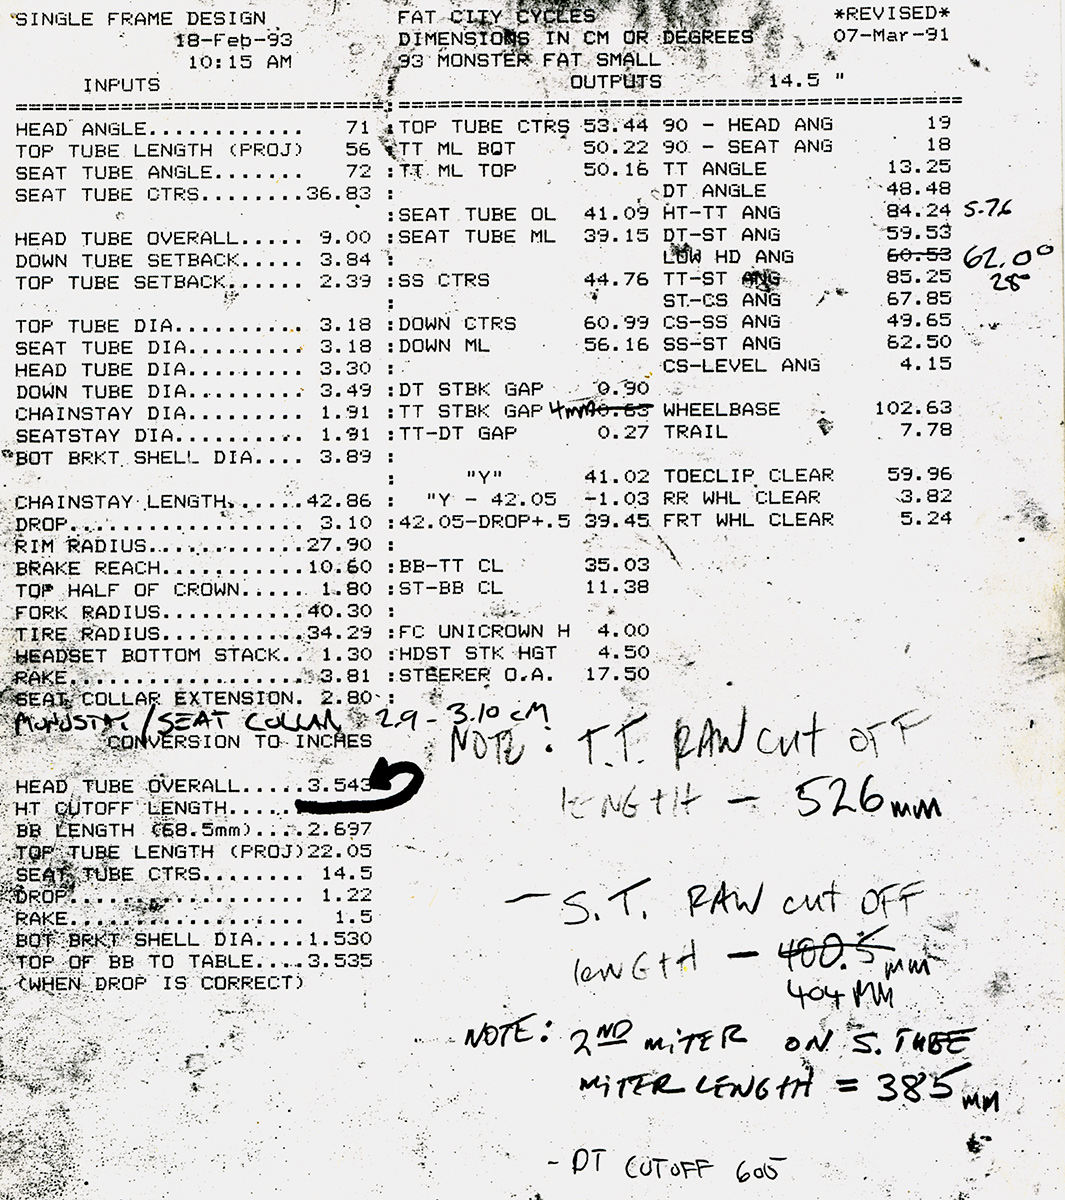 SINGLE FRAME DESIGN FAT CITY CYCLES *REVISED*
18-Feb-93 DIMENSIONS IN CM OR DEGREES 07-Mar-91
10:15 AM 93 MONSTER FAT SMALL
INPUTS OUTPUTS 14.5 "
==================================:===================================================
HEAD ANGLE............ 71 :TOP TUBE CTRS 53.44 90 - HEAD ANG 19
TOP TUBE LENGTH (PROJ) 56 :TT ML BOT 50.22 90 - SEAT ANG 18
SEAT TUBE ANGLE....... 72 :TT ML TOP 50.16 TT ANGLE 13.25
SEAT TUBE CTRS........36.83 : DT ANGLE 48.48
:SEAT TUBE OL 41.09 HT-TT ANG 84.24 5.76
HEAD TUBE OVERALL..... 9.00 :SEAT TUBE ML 39.15 DT-ST ANG 59.53
DOWN TUBE SETBACK..... 3.84 : LOW HD ANG 60.53 62.0°
TOP TUBE SETBACK...... 2.39 :SS CTRS 44.76 TT-ST ANG 85.25 28°
: ST-CS ANG 67.85
TOP TUBE DIA.......... 3.18 :DOWN CTRS 60.99 CS-SS ANG 49.65
SEAT TUBE DIA......... 3.18 :DOWN ML 56.16 SS-ST ANG 62.50
HEAD TUBE DIA......... 3.30 : CS-LEVEL ANG 4.15
DOWN TUBE DIA......... 3.49 :DT STBK GAP 0.90
CHAINSTAY DIA......... 1.91 :TT STBK GAP 4mm 0.63 WHEELBASE 102.63
SEATSTAY DIA.......... 1.91 :TT-DT GAP 0.27 TRAIL 7.78
BOT BRKT SHELL DIA.... 3.89 :
: "Y" 41.02 TOECLIP CLEAR 59.96
CHAINSTAY LENGTH......42.86 : "Y - 42.05 -1.03 RR WHL CLEAR 3.82
DROP.................. 3.10 :42.05-DROP+.5 39.45 FRT WHL CLEAR 5.24
RIM RADIUS............27.90 :
BRAKE REACH...........10.60 :BB-TT CL 35.03
TOP HALF OF CROWN..... 1.80 :ST-BB CL 11.38
FORK RADIUS...........40.30 :
TIRE RADIUS...........34.29 :FC UNICROWN H 4.00
HEADSET BOTTOM STACK.. 1.30 :HDST STK HGT 4.50
RAKE.................. 3.81 :STEERER O.A. 17.50
SEAT COLLAR EXTENSION. 2.80 :
MONOSTAY/SEAT COLLAR 2.9 - 3.10 CM
CONVERSION TO INCHES
HEAD TUBE OVERALL.....3.543
HT CUTOFF LENGTH.....
BB LENGTH (68.5mm)....2.697
TOP TUBE LENGTH (PROJ)22.05
SEAT TUBE CTRS........ 14.5
DROP.................. 1.22
RAKE.................. 1.5
BOT BRKT SHELL DIA....1.530
TOP OF BB TO TABLE....3.535
(WHEN DROP IS CORRECT)
NOTE: T.T. RAW CUT OFF
LENGTH - 526mm
- S.T. RAW CUT OFF
LENGTH - 400.5 mm
404 MM
NOTE: 2ND MITER ON S. TUBE
MITER LENGTH = 385 mm
- DT CUTOFF 605